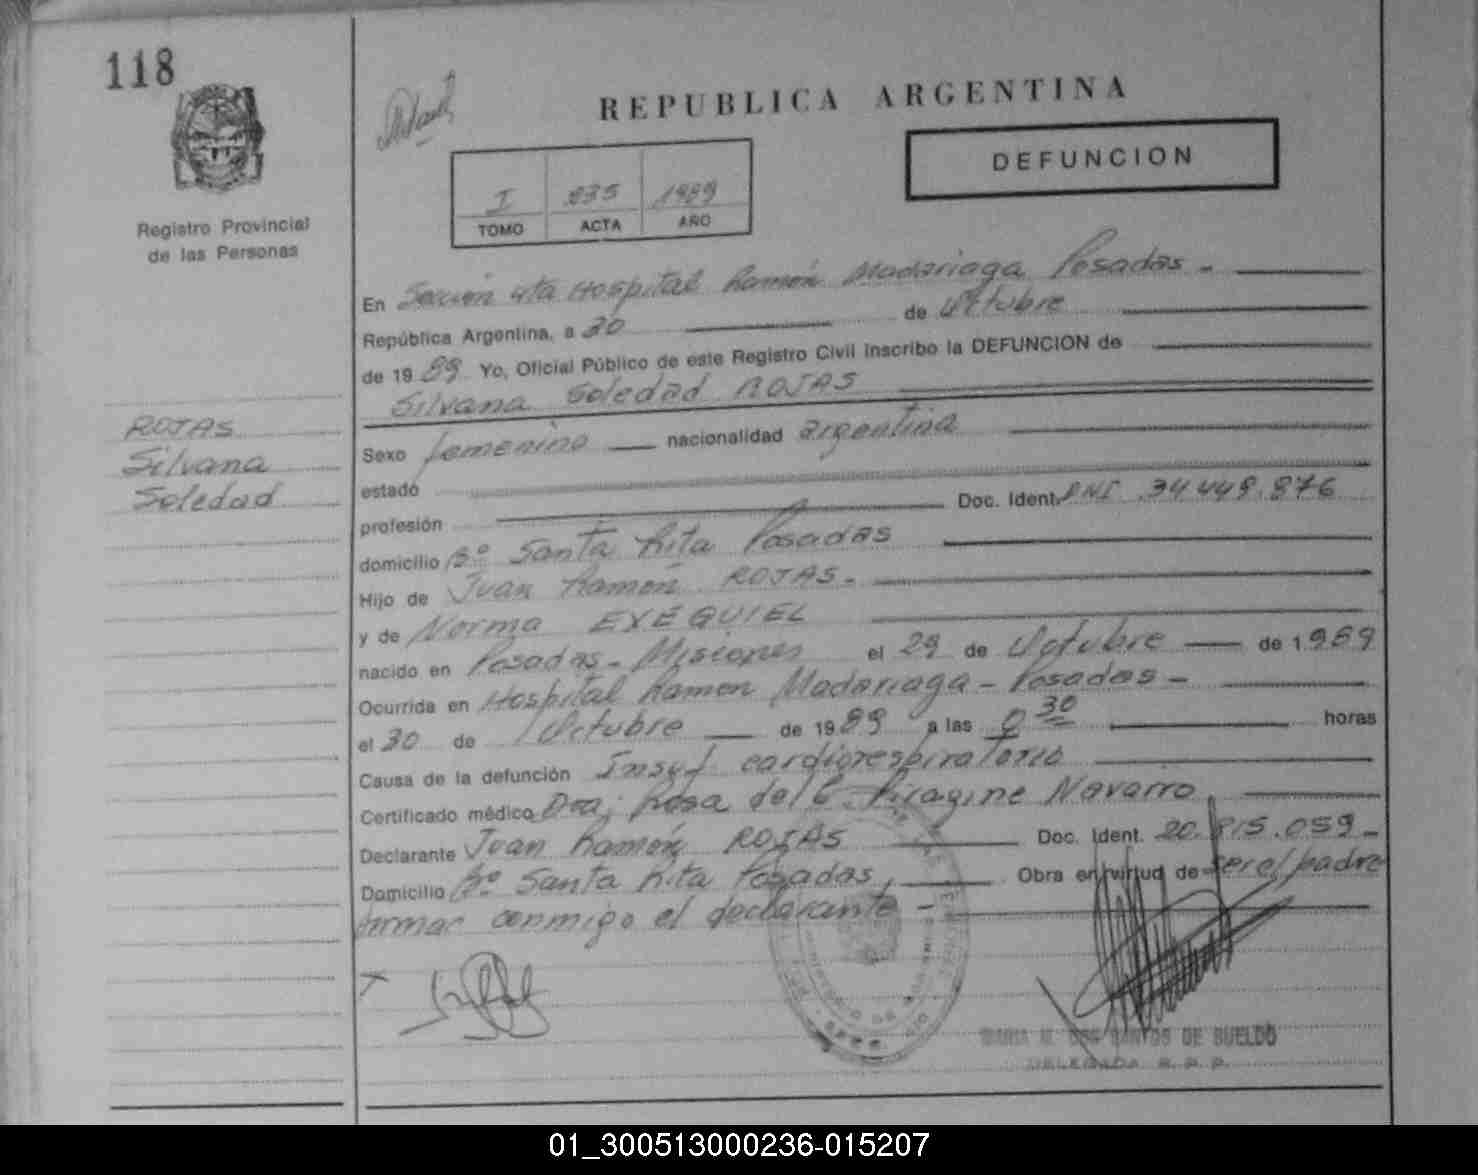 118
Registro Provincial
de las Personas
REPUBLICA ARGENTINA
DEFUNCION
I 235 1989
TOMO ACTA AÑO
En Sección 4ta Hospital Ramón Madariaga Posadas -
República Argentina, a 30 de Octubre
de 1989 Yo, Oficial Público de este Registro Civil inscribo la DEFUNCION de
Silvana Soledad ROJAS
ROJAS
Silvana
Soledad
Sexo femenino nacionalidad argentina
estado
profesión Doc. Ident. DNI 34.449.876
domicilio Bº Santa Rita Posadas
Hijo de Juan Ramón ROJAS.-
y de Norma EXEQUIEL
nacido en Posadas - Misiones el 29 de Octubre de 1989
Ocurrida en Hospital Ramón Madariaga - Posadas -
el 30 de Octubre de 1989 a las 0 30 horas
Causa de la defunción Insuf cardiorespiratoria
Certificado médico Dra; Rosa del C. Piragine Navarro
Declarante Juan Ramón ROJAS Doc. Ident. 20.815.059-
Domicilio Bº Santa Rita Posadas, Obra en virtud de ser el padre
firmar conmigo el declarante -
MARIA M. DOS SANTOS DE SUELDO
DELEGADA R. P. P.
01_300513000236-015207